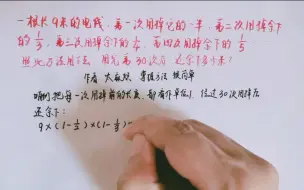 一根长9米的电线，第一次用掉它的一半，第二次用掉余下
的 1/3，第三次用掉余下的 1/4，第四次用掉余下的 1/5
照此方法用下去，用完第30次后，还余下多少米？
每一次用掉前的长度，都看作单位1，经过30次用掉后
还余下：
9×(1-1/2)×(1-1/3)-